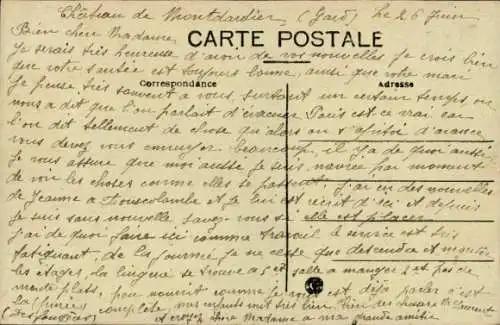 Château de Montdardier (Gard) Le 26 Juin
Bien chère Madame
CARTE POSTALE
Je serais très heureuse d'avoir de vos nouvelles je crois bien
que votre santée est toujours bonne, ainsi que votre mari
Correspondance
Adresse
Je pense très souvent a vous, surtout un certain temps on
nous a dit que l'on parlait d'évacuer Paris est ce vrai car
l'on dit tellement de chose qu'alors on s' d'avance
vous devez vous ennuyer beaucoup il y a de quoi aussi
Je vous assure que moi aussi je suis navrée par moment
de voir les choses comme elles se passent, j'ai eu des nouvelles
de Jeanne a et je lui est écrit d'ici et depuis
je suis sans nouvelle savez-vous si elle est placée
j'ai de quoi faire ici comme travail le service est très
fatiguant, de la journée je ne cesse que descendre et monter
les étages, la lingerie se trouve a 5 et salle a manger 2 et pas de
monte plats, peu nourrit comme je vous est déjà parler c'est
la purée complète, mes enfants vont très bien
et croyez chère Madame a ma grande amitié